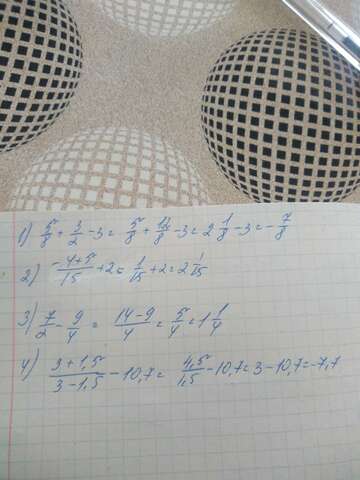 1) 5/8 + 3/2 - 3 = 5/8 + 12/8 - 3 = 2 1/8 - 3 = - 7/8
2) -4+5/15 + 2 = 1/15 + 2 = 2 1/15
3) 7/2 - 9/4 = 14-9/4 = 5/4 = 1 1/4
4) 3+1,5/3-1,5 - 10,7 = 4,5/1,5 - 10,7 = 3 - 10,7 = -7,7